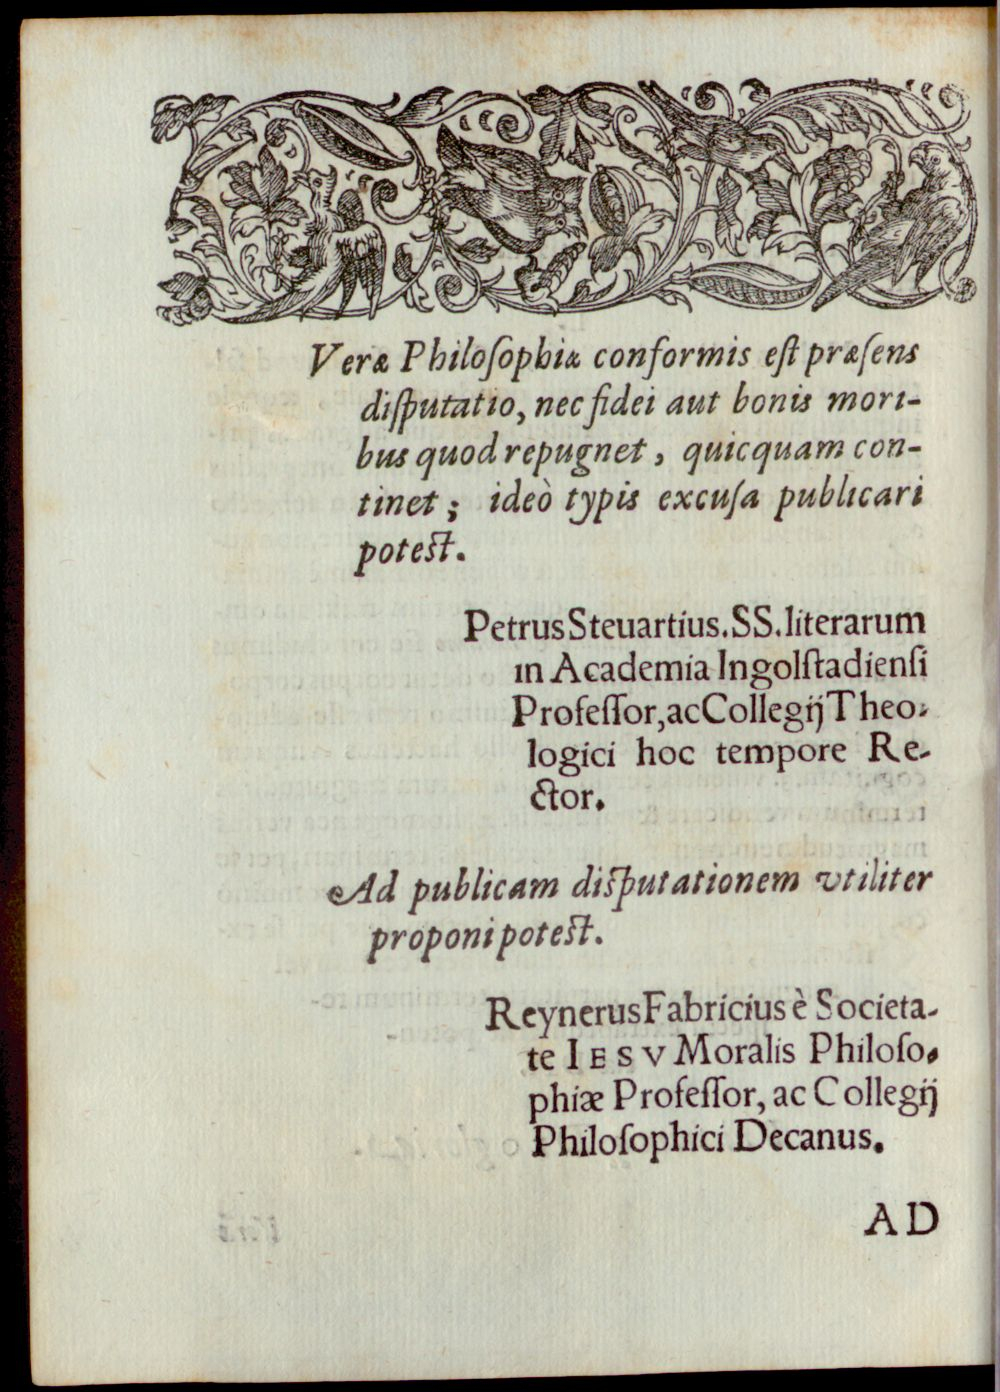 Veræ Philoſophiæ conformis eſt præſens
diſputatio, nec fidei aut bonis mori-
bus quod repugnet, quicquam con-
tinet; ideò typis excuſa publicari
poteſt.
Petrus Steuartius. SS. literarum
in Academia Ingolſtadienſi
Profeſſor, ac Collegij Theo-
logici hoc tempore Re-
ctor.
Ad publicam diſputationem vtiliter
proponi poteſt.
Reynerus Fabricius è Societa-
te IESV Moralis Philoſo-
phiæ Profeſſor, ac Collegij
Philoſophici Decanus.
AD